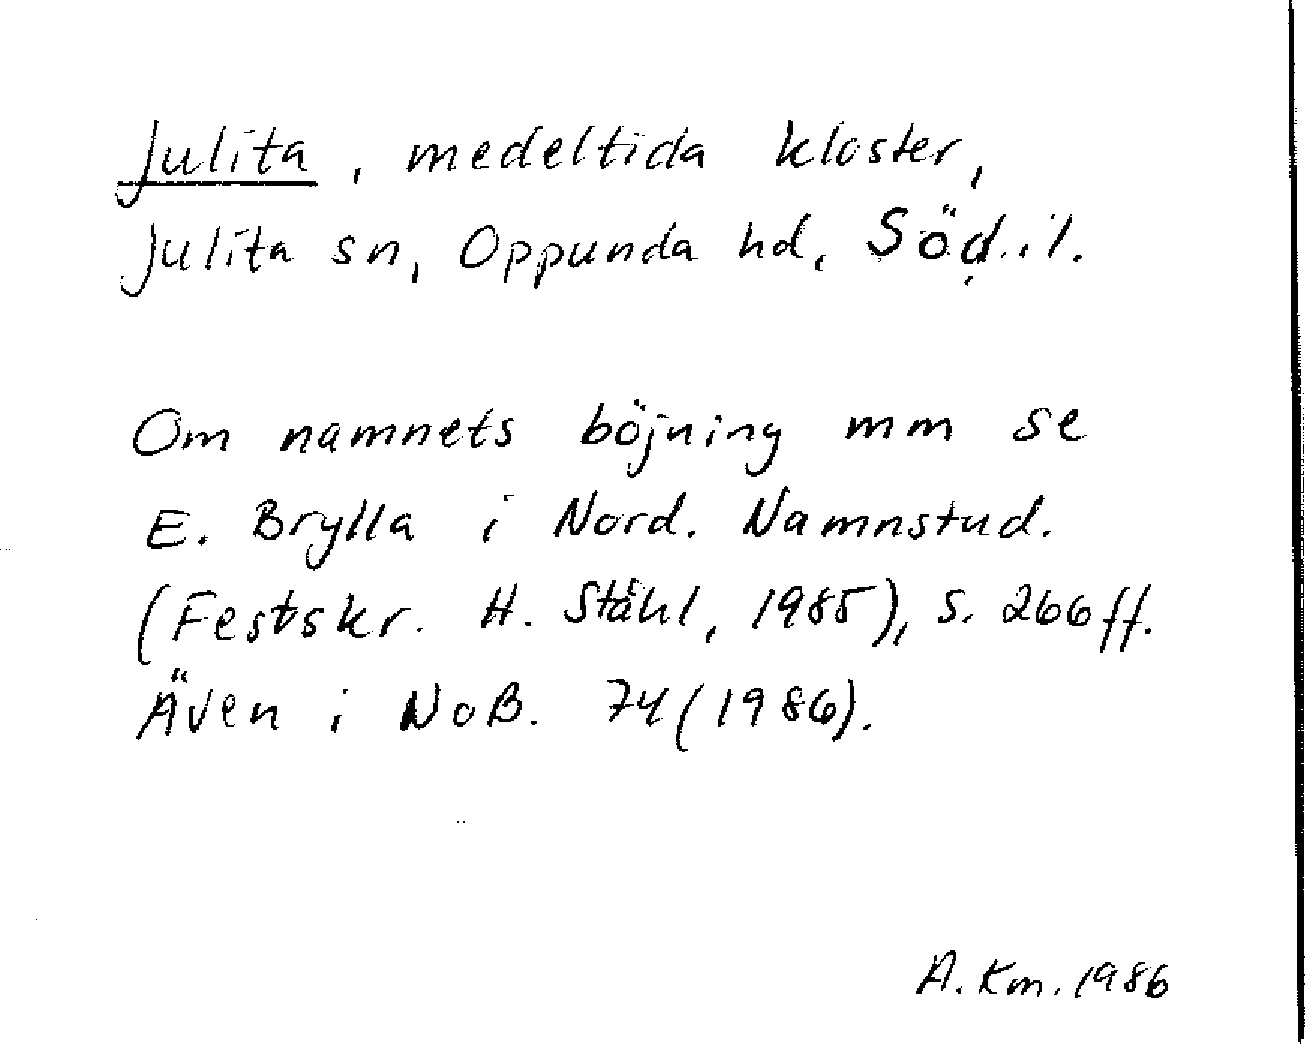 Julita, medeltida kloster,
Julita sn, Oppunda hd, Söd.l.
Om namnets böjning mm se
E. Brylla i Nord. Namnstud.
(Festskr. H. Ståhl, 1985), s. 266ff.
Även i NoB. 74(1986).
A. Km. 1986